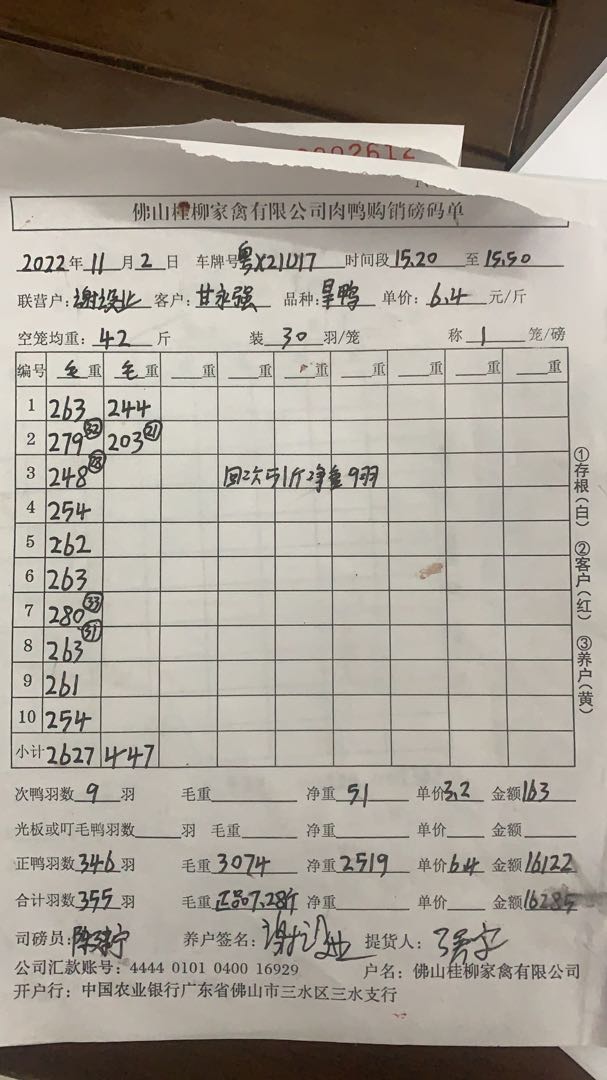 0002612
佛山桂柳家禽有限公司肉鸭购销磅码单
2022年11月2日 车牌号粤X21U17 时间段15.20至15.50
联营户:谢设业 客户:甘永强 品种:旱鸭 单价:6.4元/斤
空笼均重:42斤 装30羽/笼 称1笼/磅
编号 毛重 毛重 重 重 重 重 重 重 重
1 263 244
2 279 32 203 21
3 248 28 回次51斤净重9羽
4 254
5 262
6 263
7 280 33
8 263 31
9 261
10 254
小计 2627 447
①存根(白) ②客户(红) ③养户(黄)
次鸭羽数9羽 毛重 净重51 单价3.2 金额163
光板或叮毛鸭羽数 羽 毛重 净重 单价 金额
正鸭羽数346羽 毛重3074 净重2519 单价6.4 金额16122
合计羽数355羽 毛重正品7.28斤 净重 单价 金额16285
司磅员: 养户签名:谢设业 提货人:
公司汇款账号:4444 0101 0400 16929 户名:佛山桂柳家禽有限公司
开户行:中国农业银行广东省佛山市三水区三水支行